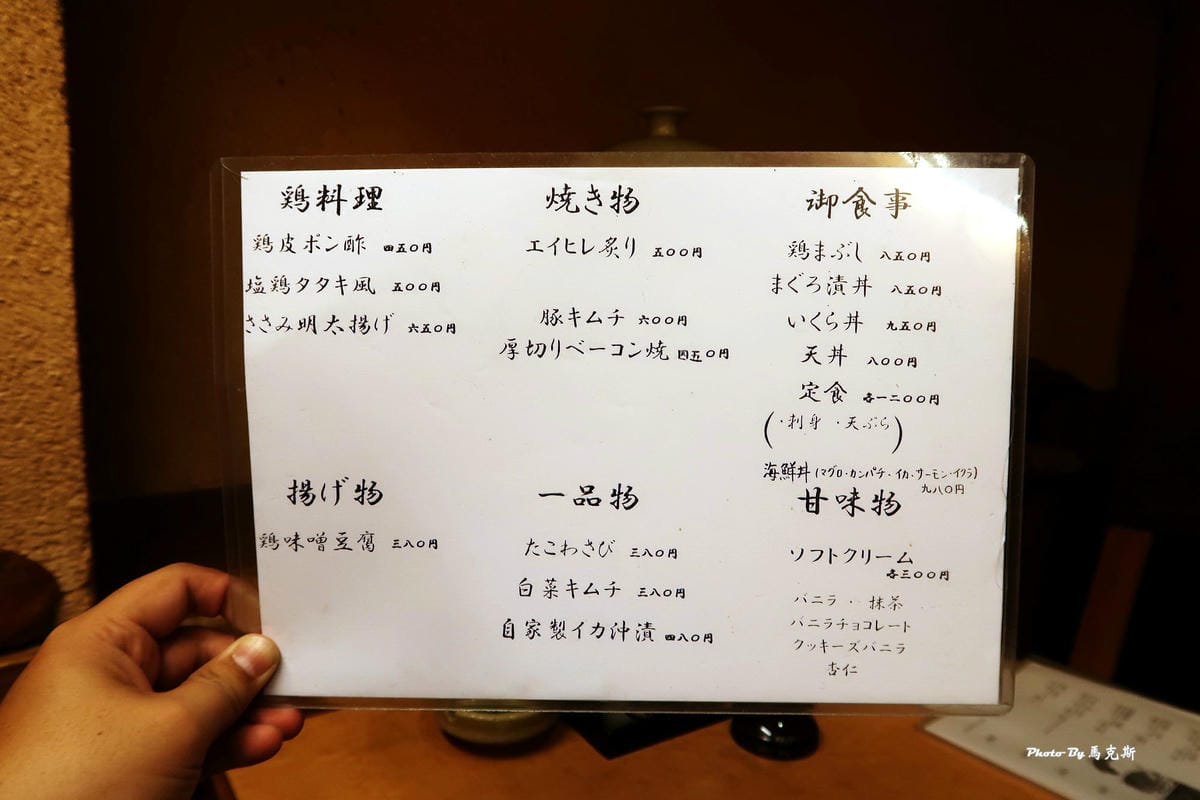 鶏料理
鶏皮ポン酢 四五〇円
塩鶏タタキ風 五〇〇円
ささみ明太揚げ 六五〇円
揚げ物
鶏味噌豆腐 三八〇円
焼き物
エイヒレ炙り 五〇〇円
豚キムチ 六〇〇円
厚切りベーコン焼 四五〇円
一品物
たこわさび 三八〇円
白菜キムチ 三八〇円
自家製イカ沖漬 四八〇円
御食事
鶏まぶし 八五〇円
まぐろ漬丼 八五〇円
いくら丼 九五〇円
天丼 八〇〇円
定食 各一二〇〇円
(・刺身 ・天ぷら)
海鮮丼(マグロ・カンパチ・イカ・サーモン・イクラ)
九八〇円
甘味物
ソフトクリーム
各三〇〇円
バニラ ・ 抹茶
バニラチョコレート
クッキーズバニラ
杏仁
Photo By 馬克斯